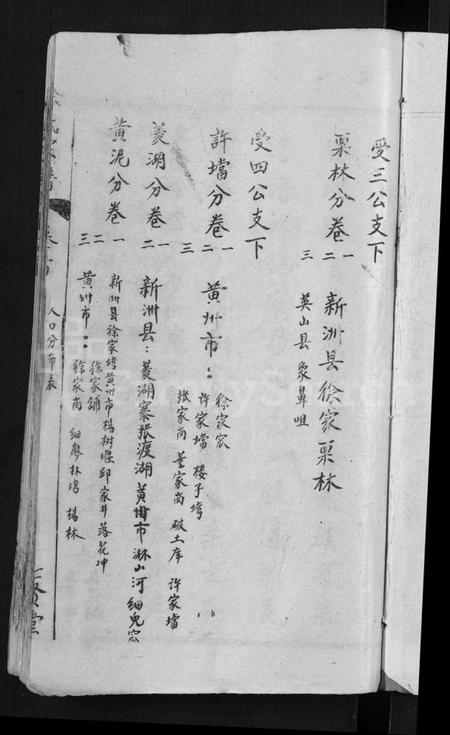 受三公支下
栗林分卷
一
二
三
新洲县徐家栗林
英山县象鼻咀
受四公支下
許壋分卷
一
二
三
黄州市：
徐家窊
许家壋 楼子塆
张家岗 董家岗 破土库 许家壋
菱湖分卷
一
二
新洲县：菱湖寨张渡湖黄州市淋山河细兜窊
黄泥分卷
一
二
三
新洲县徐家塆黄州市楊树堰邱家井落花冲
黄州市：
徐家铺
徐家岗 细廖林塆 楊林
人口分布表